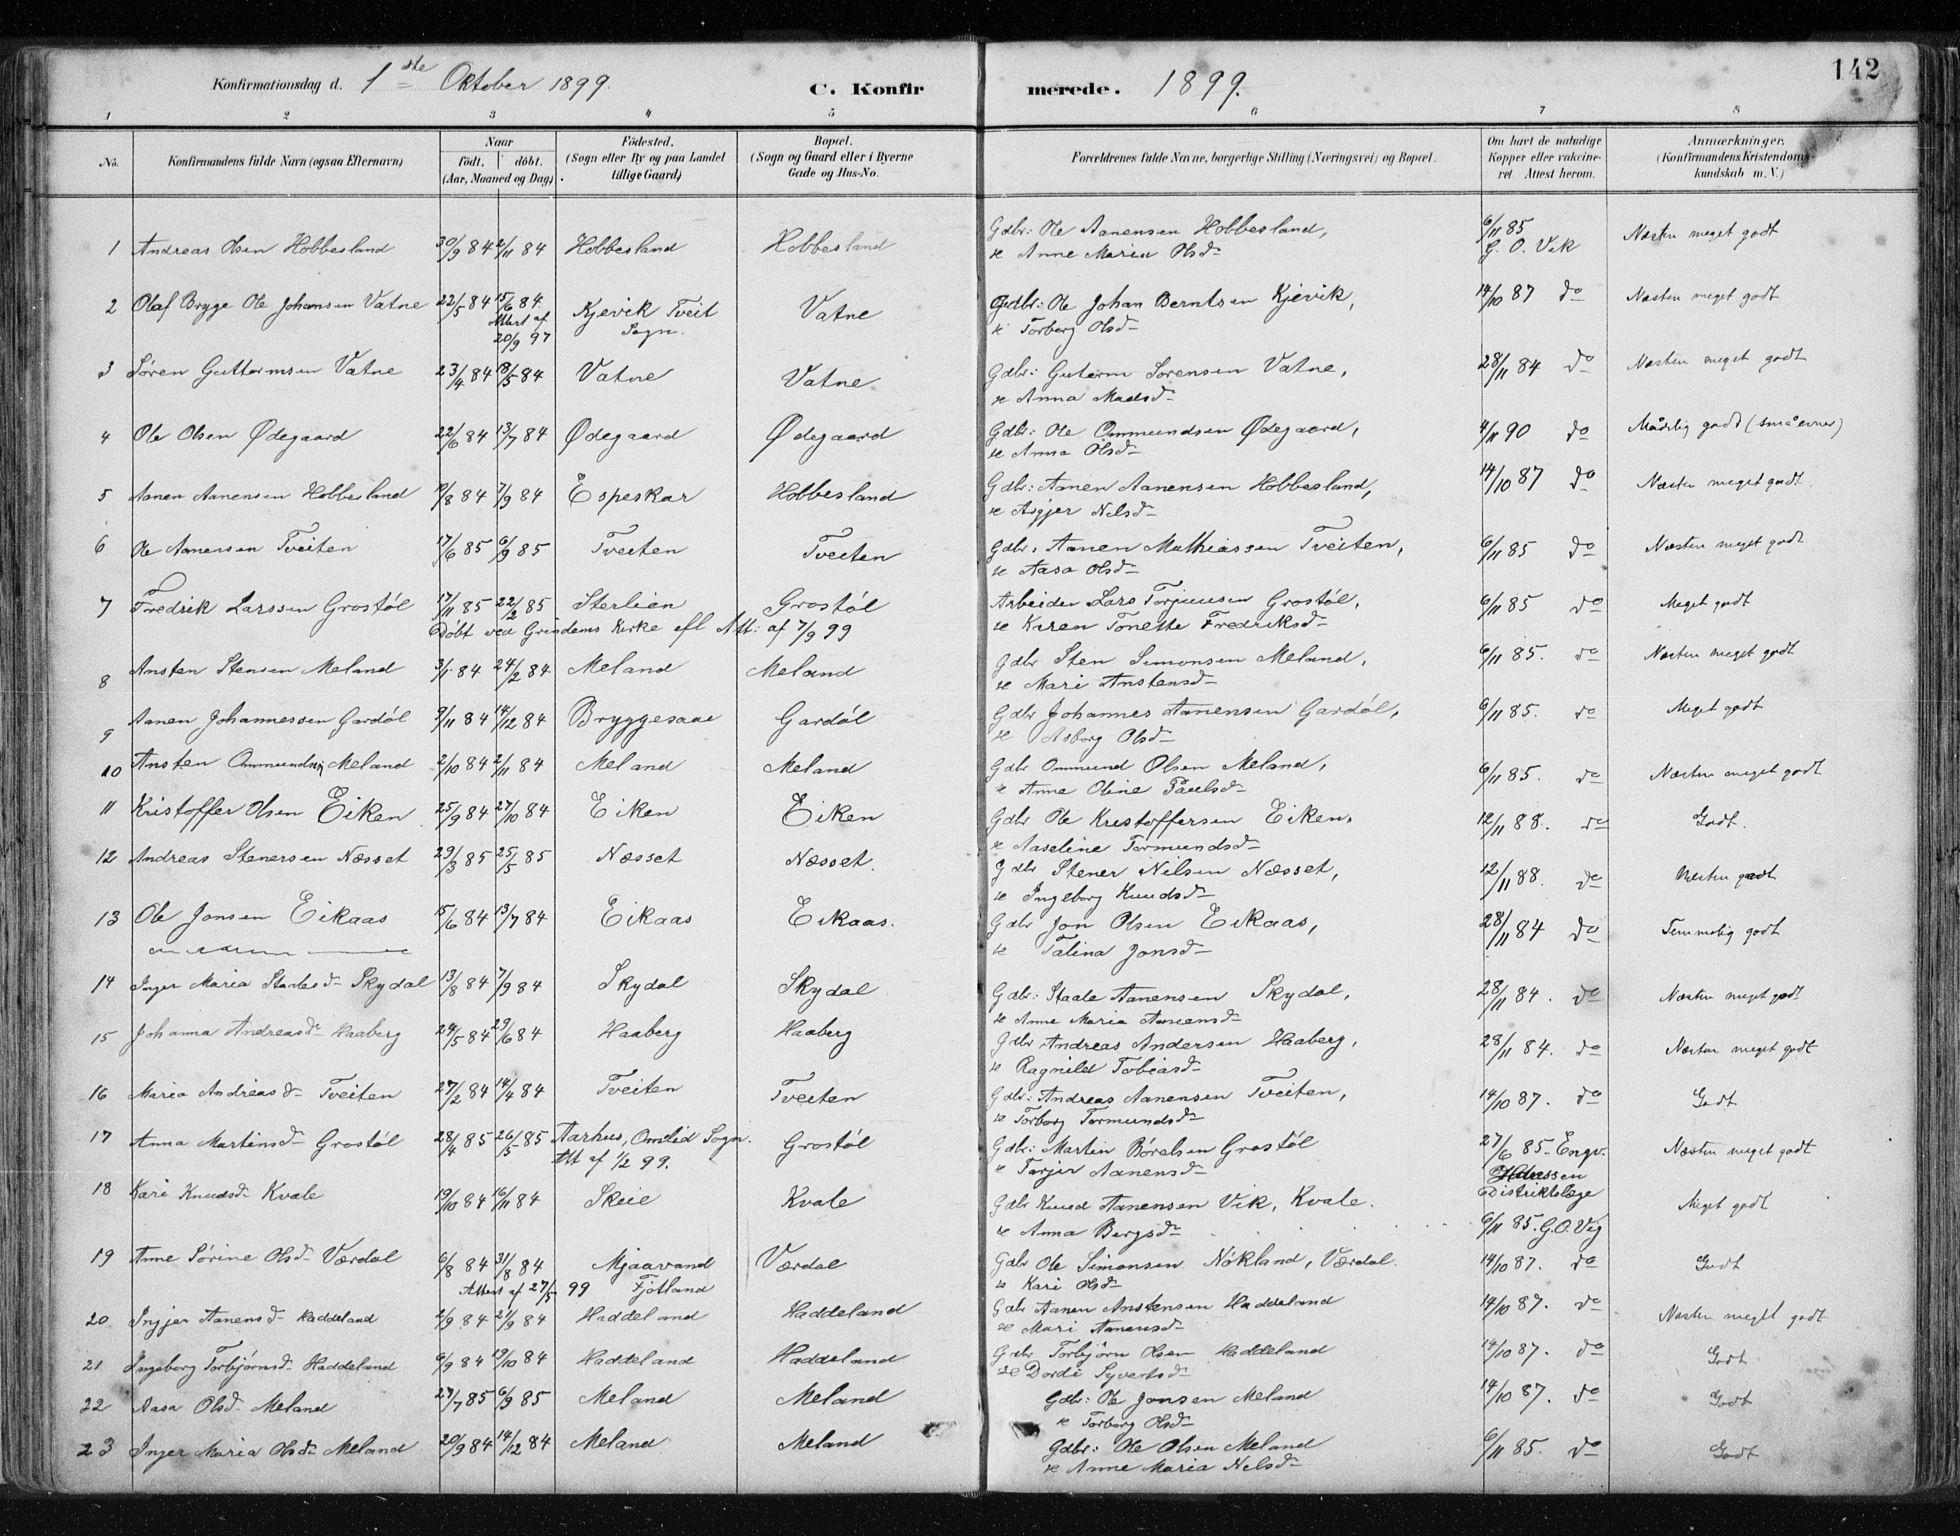 142
Konfirmationsdag d. 1ste Oktober 1899. C. Konfirmerede. 1899.
1 2 3 4 5 6 7 8
No. Konfirmandens fulde Navn (ogsaa Efternavn) Naar födt. döbt. (Aar, Maaned og Dag) Födested. (Sogn eller By og paa Landet tillige Gaard) Bopæl. (Sogn og Gaard eller i Byerne Gade og Hus-No. Forældrenes fulde Navne, borgerlige Stilling (Næringsvei) og Bopæl. Om havt de naturlige Kopper eller vakcineret. Attest herom. Anmærkninger. (Konfirmandens Kristendomskundskab m. V.)
1 Andreas Olsen Hobbesland 30/9 84 2/11 84 Hobbesland Hobbesland Gdbr: Ole Aanensen Hobbesland, 6/11 85 Næsten meget godt
& Anne Maria Olsd. G. O. Vik
2 Olaf Bryge Ole Johansen Vatne 22/5 84 15/6 84 Kjevik Tveit Vatne Gdbr: Ole Johan Berntsen Kjevik, 14/10 87 do Næsten meget godt
Attest af 20/9 97 Sogn. & Torborg Olsd.
3 Søren Guttormsen Vatne 23/4 84 18/5 84 Vatne Vatne Gdbr: Gutorm Sørensen Vatne, 28/11 84 do Næsten meget godt
& Anna Madsd.
4 Ole Olsen Ødegaard 22/6 84 13/7 84 Ødegaard Ødegaard Gdbr: Ole Ommundsen Ødegaard, 4/11 90 do Mådelig godt (små evner)
& Anna Olsd.
5 Aanen Aanensen Hobbesland 19/8 84 7/9 84 Espeskar Hobbesland Gdbr: Aanen Aanensen Hobbesland, 14/10 87 do Næsten meget godt.
& Asgjer Nelsd.
6 Ole Aanensen Tveiten 17/6 85 6/9 85 Tveiten Tveiten Gdbr: Aanen Mathiassen Tveiten, 6/11 85 do Næsten meget godt
& Aasa Olsd.
7 Fredrik Larssen Grostøl 17/11 85 22/2 85 Sterlien Grostøl Arbeider Lars Torjussen Grostøl, 6/11 85 do Meget godt
Døbt ved Grindems Kirke efl Att: af 7/9 99 & Karen Tonette Fredriksd.
8 Ansten Stensen Meland 3/1 84 24/2 84 Meland Meland Gdbr Sten Simonsen Meland, 6/11 85. do Næsten meget godt
& Mari Anstensd.
9 Aanen Johannessen Gardøl 9/11 84 14/12 84 Bryggesaae Gardøl Gdbr Johannes Aanensen Gardøl, 6/11 85. do Meget godt
& Asborg Olsd.
10 Ansten Ommundsen Meland 2/10 84 2/11 84 Meland Meland Gdbr Ommund Olsen Meland, 6/11 85. do Næsten meget godt
& Anne Oline Paulsd.
11 Kristoffer Olsen Eiken 25/9 84 27/10 84 Eiken Eiken Gdbr Ole Kristoffersen Eiken, 12/11 88. do Godt.
& Aaseline Tormundsd.
12 Andreas Stenersen Næsset 29/3 85 25/5 85 Næsset Næsset. Gdbr Stener Nilsen Næsset, 12/11 88. do Næsten godt
& Ingeborg Knudsd.
13 Ole Jonsen Eikaas 15/6 84 13/7 84 Eikaas Eikaas. Gdbr Jon Olsen Eikaas, 28/11 84 do Temmelig godt
& Talina Jonsd.
14 Inger Maria Staalesd. Skydal 13/8 84 7/9 84 Skydal Skydal Gdbr: Staale Aanensen Skydal, 28/11 84. do Næsten meget godt
& Anne Maria Aanensd.
15 Johanna Andreasd. Haaberg 24/5 84 29/6 84 Haaberg Haaberg Gdbr Andreas Andersen Haaberg, 28/11 84. do Næsten meget godt
& Ragnild Tobiasd.
16 Maria Andreasd. Tveiten 27/2 84 14/4 84 Tveiten Tveiten Gdbr: Andreas Aanensen Tveiten, 14/10 87. do Godt
& Torborg Tormundsd.
17 Anna Martinsd. Grostøl 28/4 85 26/5 85 Aarhus, Omlid Sogn. Grostøl Gdbr: Martin Børelsen Grostøl 27/6 85. Engv. Næsten meget godt
Att af 1/2 99. & Torjer Aanensd. Distriktslæge
18 Kari Knudsd. Kvale 19/10 84 16/11 84 Skeie Kvale Gdbr Knud Aanensen Vik, Kvale. Meget godt
& Anna Bergsd. 6/11 85. G.O. Vig
19 Anne Sørine Olsd. Værdal 6/8 84 31/8 84 Mjaavand Værdal Gdbr Ole Simonsen Nökland, Værdal. 14/10 87. do Godt
Attest af 27/5 99 Fjotland & Kari Olsd.
20 Ingjer Aanensd. Haddeland 2/9 84 21/9 84 Haddeland Haddeland Gdbr Aanen Anstensen Haddeland 14/10 87. do Næsten meget godt
& Mari Aanensd.
21 Ingeborg Torbjørnsd. Haddeland 6/9 84 19/10 84 Haddeland Haddeland Gdbr Torbjørn Olsen Haddeland 14/10 87. do Godt
& Dordi Syvertsd.
22 Aasa Olsd. Meland 27/7 85 6/9 85 Meland Meland Gdbr: Ole Jonsen Meland 14/10 87. do Godt
& Torborg Olsd.
23 Inger Maria Olsd. Meland 20/9 84 14/12 84 Meland Meland Gdbr: Ole Olsen Meland 6/11 85. do Godt
& Anne Maria Nelsd.